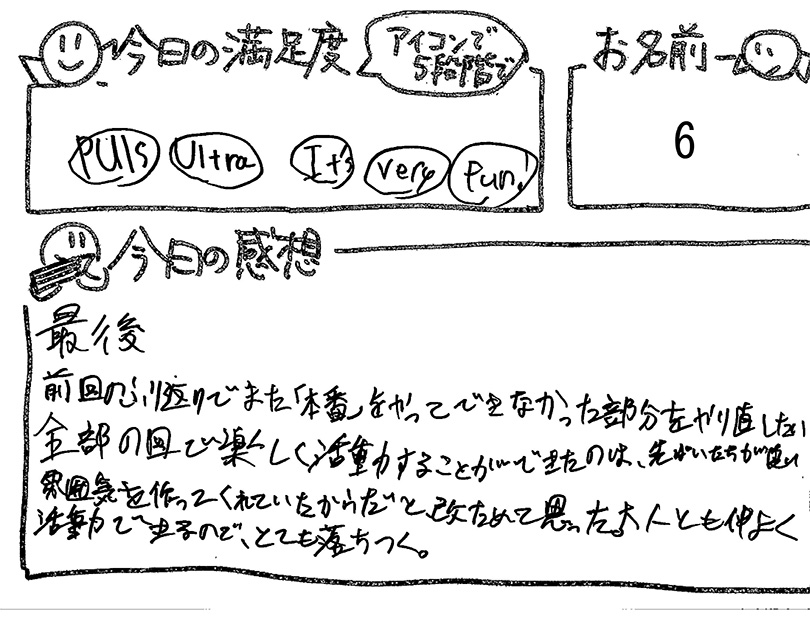 今日の満足度
アイコンで
5段階で
お名前
PUIS Ultra It's very fun!
6
今日の感想
最後
前回のふり返りでまた「本番」をやってできなかった部分をやり直したい
全部の回で楽しく活動することができたのは、先ぱいたちが良い
雰囲気を作ってくれていたからだと、改ためて思った。大人とも仲よく
活動できるので、とても落ちつく。